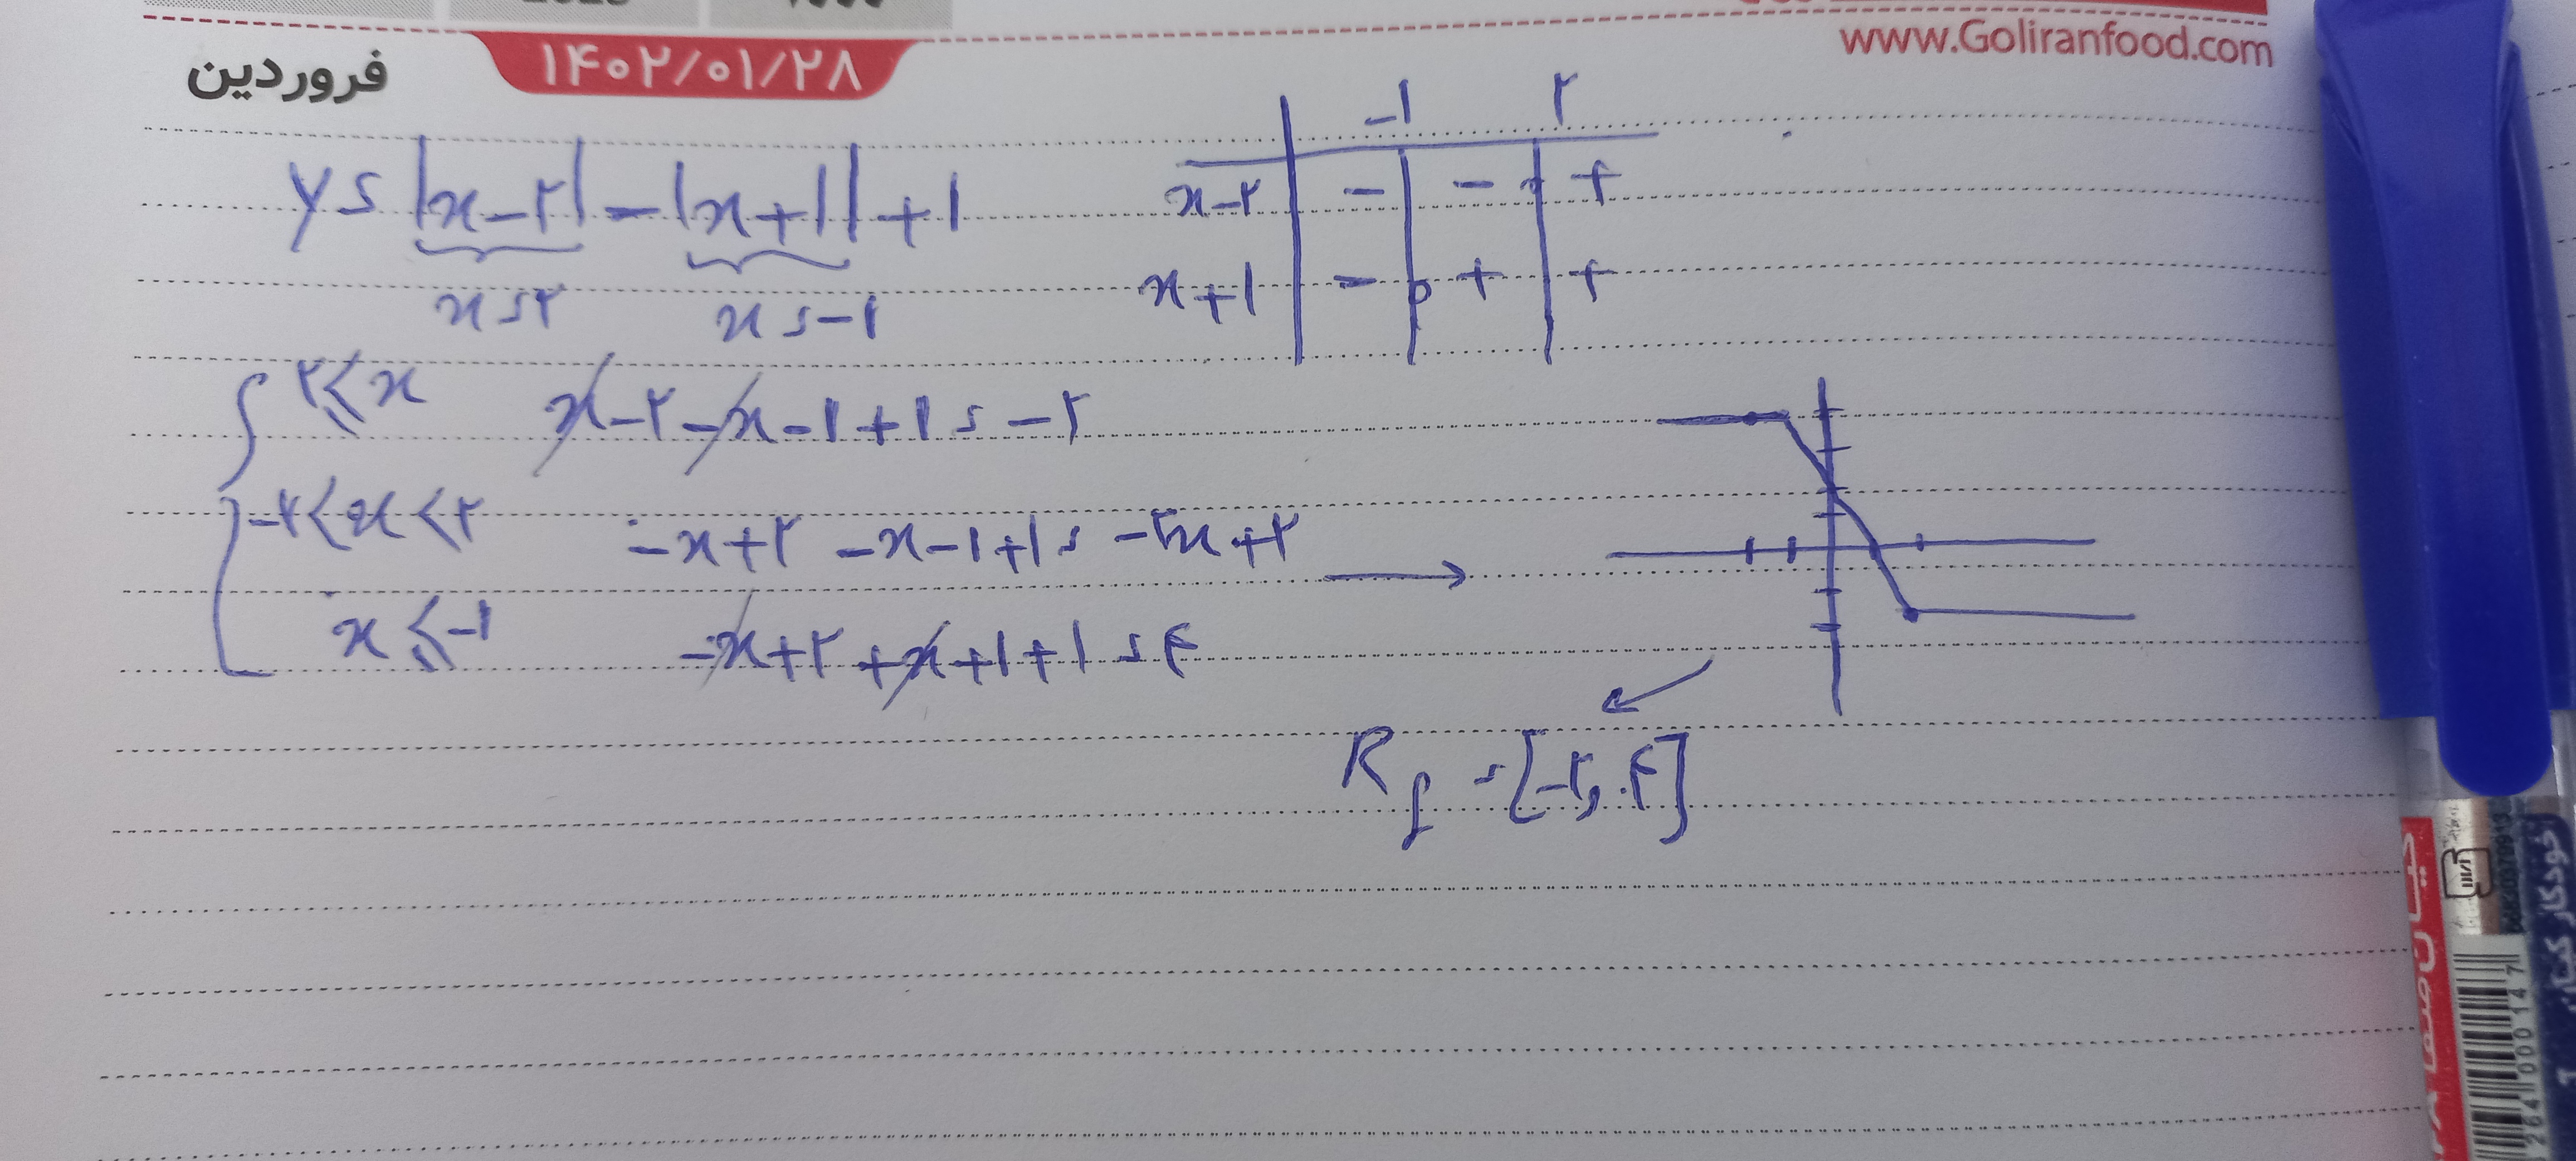 www.Goliranfood.com
فروردین
۱۴۰۲/۰۱/۲۸
y = |x-۲| - |x+۱| + ۱
x=۲ x=-۱
-۱ ۲
x-۲ - - ۰ +
x+۱ - ۰ + +
۲≤x x-۲-x-۱+۱ = -۲
-۲<x<۲ -x+۲-x-۱+۱ = -۲x+۲ →
x≤-۱ -x+۲+x+۱+۱ = ۴
R f = [-۲, ۴]
خودکار